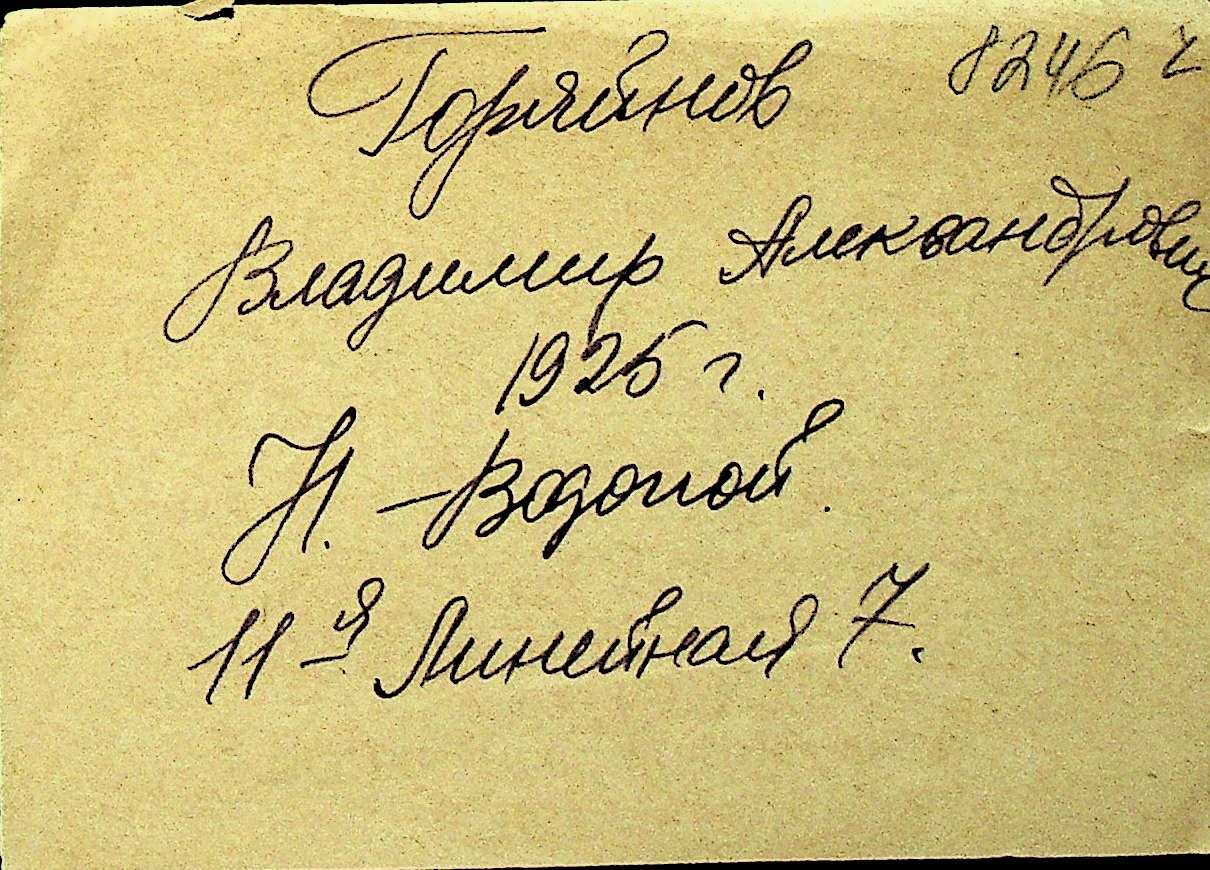 8246 г
Горяйнов
Владимир Александрович
1925 г.
Н. - Водопой.
11-я Линейная 7.